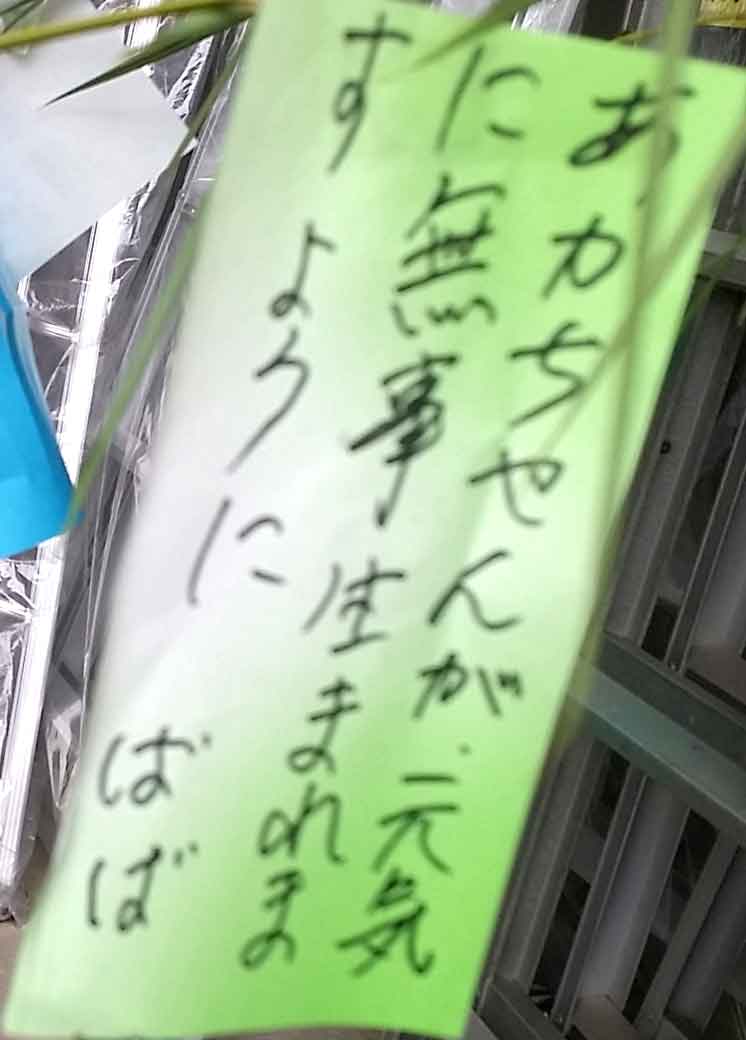 あかちゃんが元気
に無事生まれま
すように
ばば